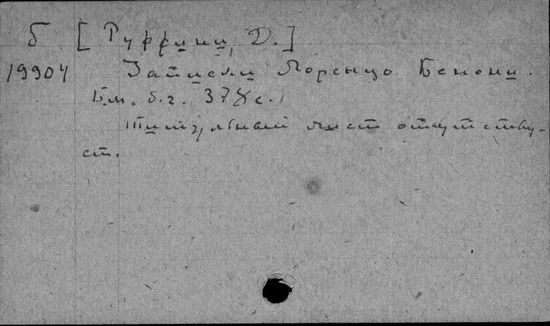 Б [Руффини, Д.]
19904 Записки Лоренцо Бенони.
Б.м. б.г. 378 с.
Титульный лист отсутству-
ст.